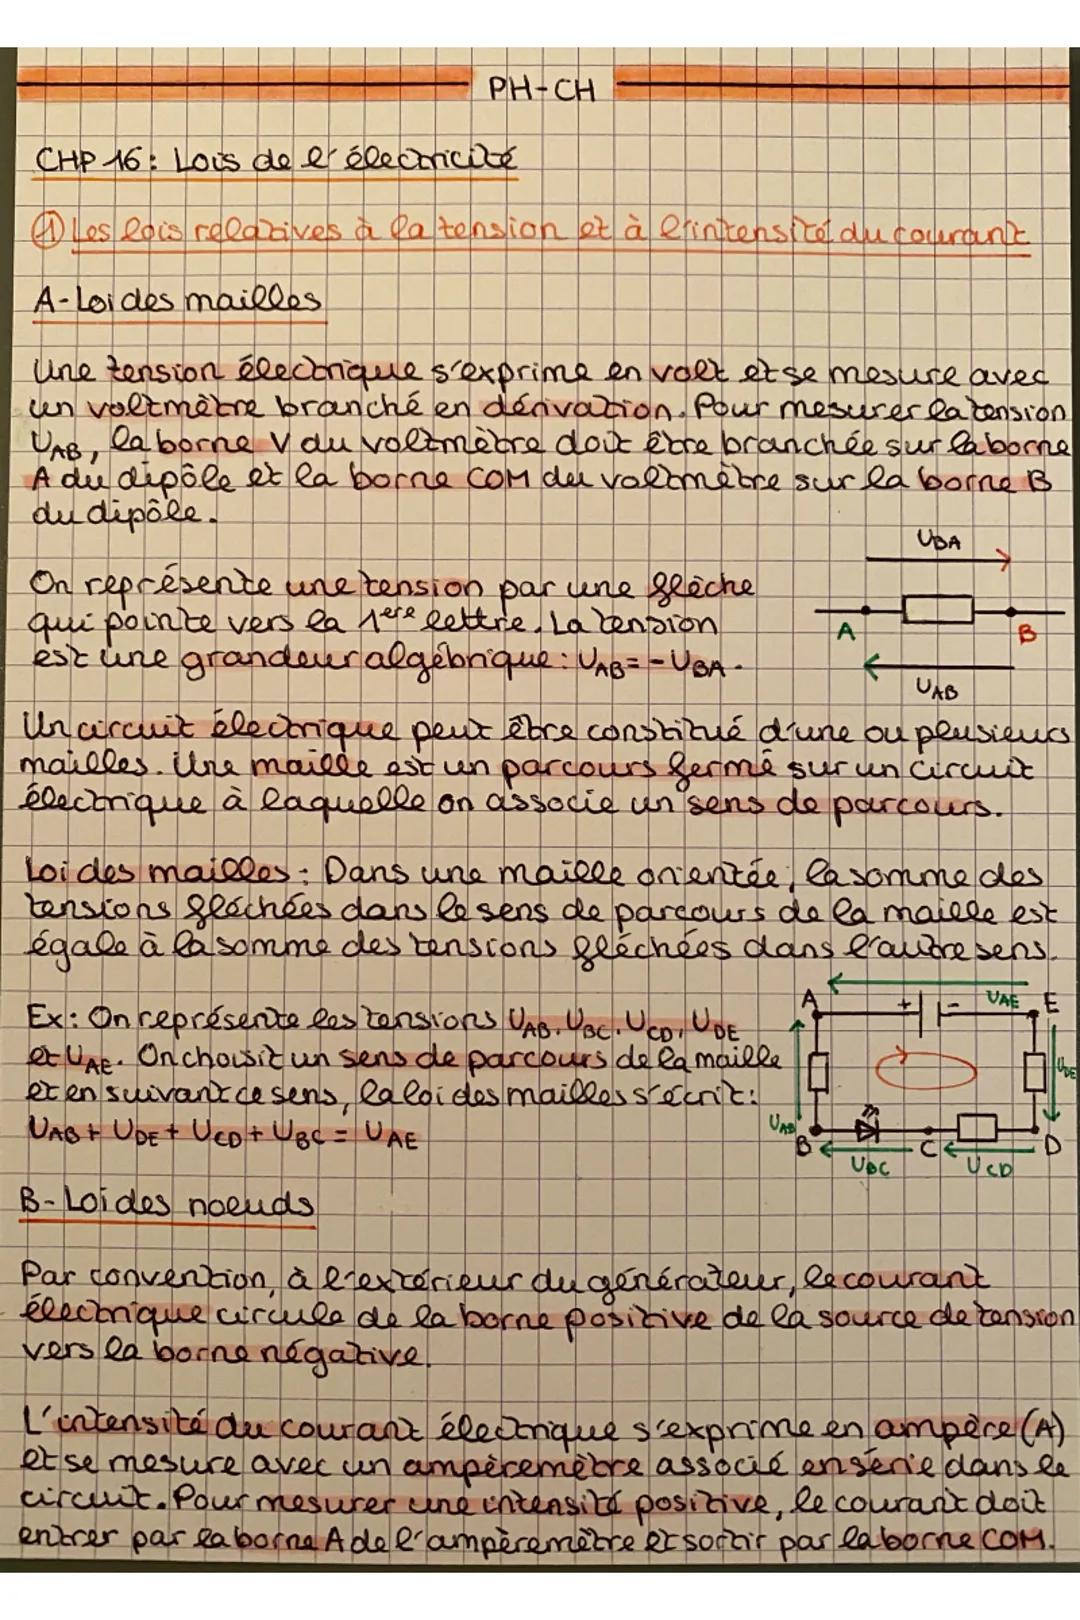 PH-CH
CHP 16: Lois de l'électricité
① Les lois relatives à la tension et à l'intensité du courant
A- Loi des mailles
Une tension électrique s'exprime en volt et se mesure avec
un voltmètre branché en dérivation. Pour mesurer la tension
UAB, la borne V du voltmètre doit être branchée sur la borne
A du dipôle et la borne COM du voltmètre sur la borne B
du dipôle.
UBA
On représente une tension par une flèche
qui pointe vers la 1ère lettre. La tension
A B
est une grandeur algébrique: UAB = - UBA.
UAB
Un circuit électrique peut être constitué d'une ou plusieurs
mailles. Une maille est un parcours fermé sur un circuit
électrique à laquelle on associe un sens de parcours.
Loi des mailles: Dans une maille orientée, la somme des
tensions fléchées dans le sens de parcours de la maille est
égale à la somme des tensions fléchées dans l'autre sens.
A + - UAE E
Ex: On représente les tensions UAB, UBC, UCD, UDE
et UAE. On choisit un sens de parcours de la maille
UDE
et en suivant ce sens, la loi des mailles s'écrit:
UAB + UDE + UCD + UBC = UAE
UAB
B C D
UBC UCD
B- Loi des noeuds
Par convention, à l'extérieur du générateur, le courant
électrique circule de la borne positive de la source de tension
vers la borne négative.
L'intensité du courant électrique s'exprime en ampère (A)
et se mesure avec un ampèremètre associé en série dans le
circuit. Pour mesurer une intensité positive, le courant doit
entrer par la borne A de l'ampèremètre et sortir par la borne COM.